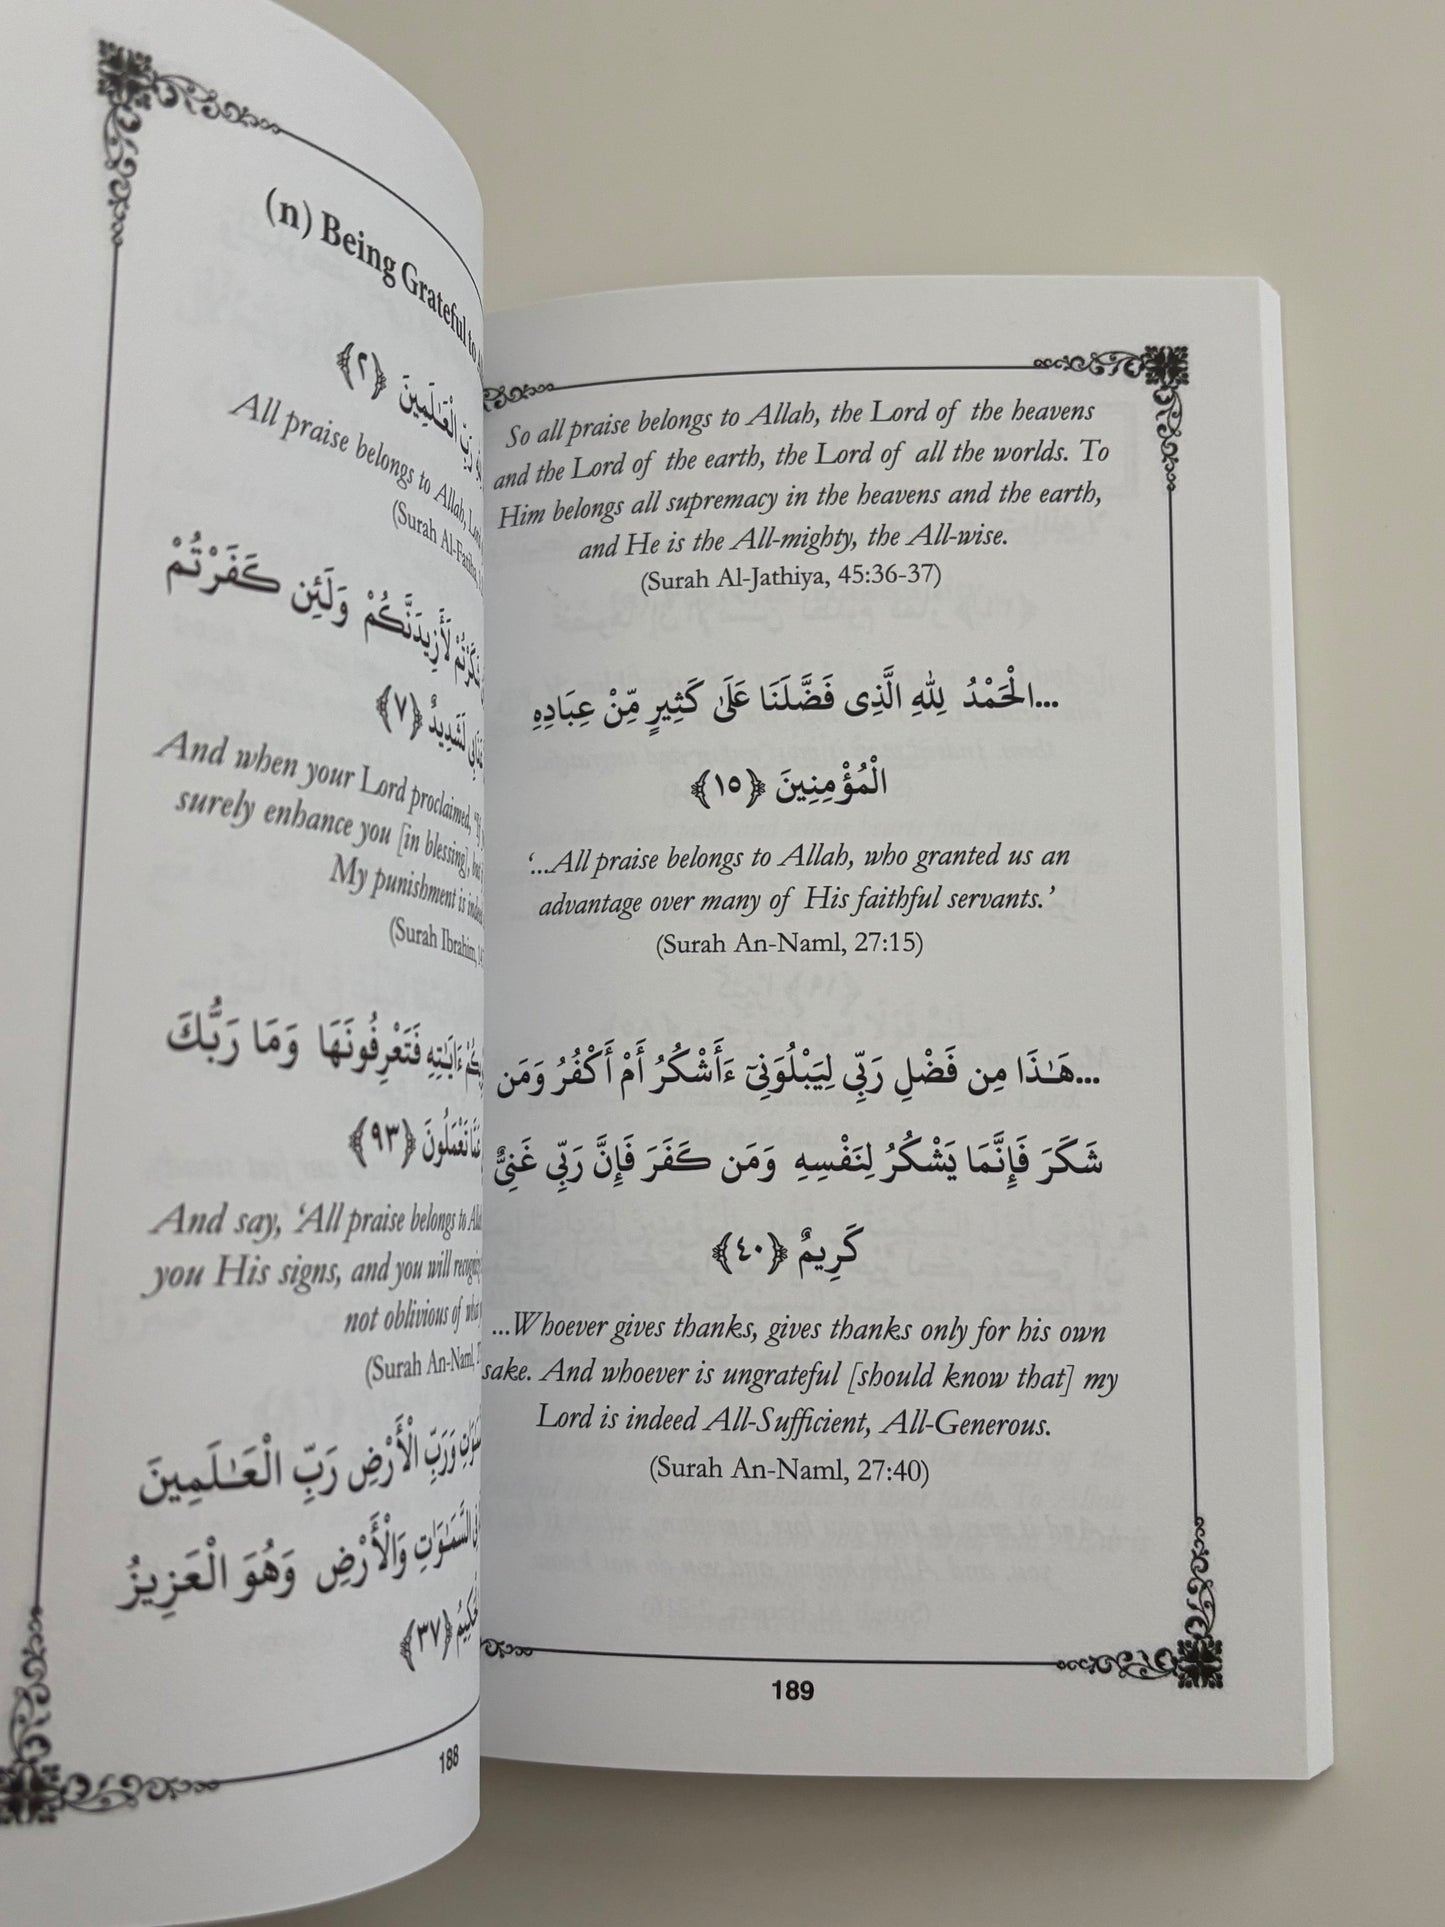 (n) Being Grateful to
الْعَـٰلَمِينَ ﴿٢﴾
All praise belongs to Allah, Lord
(Surah Al-Fatiha,
لَأَزِيدَنَّكُمْ وَلَئِن كَفَرْتُمْ
لَشَدِيدٌ ﴿٧﴾
And when your Lord proclaimed,
surely enhance you [in blessing], but
My punishment is
(Surah Ibrahim,
ءَايَـٰتِهِ فَتَعْرِفُونَهَا وَمَا رَبُّكَ
تَعْمَلُونَ ﴿٩٣﴾
And say, ‘All praise belongs to
you His signs, and you will
not oblivious of
(Surah An-Naml,
وَرَبِّ الْأَرْضِ رَبِّ الْعَـٰلَمِينَ
السَّمَـٰوَٰتِ وَالْأَرْضِ وَهُوَ الْعَزِيزُ
﴿٣٧﴾
188
So all praise belongs to Allah, the Lord of the heavens
and the Lord of the earth, the Lord of all the worlds. To
Him belongs all supremacy in the heavens and the earth,
and He is the All-mighty, the All-wise.
(Surah Al-Jathiya, 45:36-37)
...الْحَمْدُ لِلَّهِ الَّذِى فَضَّلَنَا عَلَىٰ كَثِيرٍ مِّنْ عِبَادِهِ
الْمُؤْمِنِينَ ﴿١٥﴾
‘...All praise belongs to Allah, who granted us an
advantage over many of His faithful servants.’
(Surah An-Naml, 27:15)
...هَـٰذَا مِن فَضْلِ رَبِّى لِيَبْلُوَنِىٓ ءَأَشْكُرُ أَمْ أَكْفُرُ وَمَن
شَكَرَ فَإِنَّمَا يَشْكُرُ لِنَفْسِهِ وَمَن كَفَرَ فَإِنَّ رَبِّى غَنِىٌّ
كَرِيمٌ ﴿٤٠﴾
...Whoever gives thanks, gives thanks only for his own
sake. And whoever is ungrateful [should know that] my
Lord is indeed All-Sufficient, All-Generous.
(Surah An-Naml, 27:40)
189